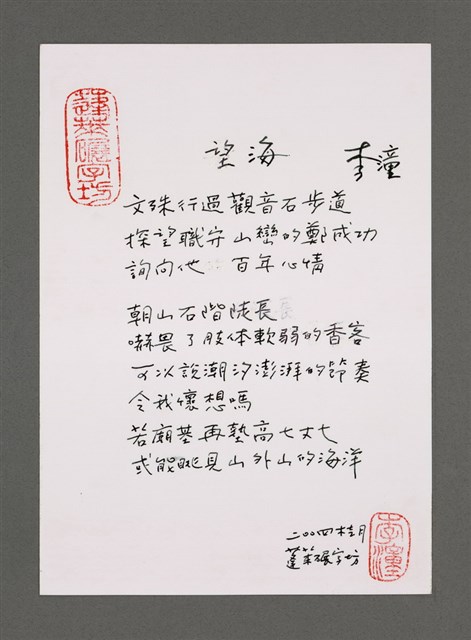 蓬萊碾字坊
望海 李潼
文殊行過觀音石步道
探望職守山巒的鄭成功
詢向他 百年心情
朝山石階陡長
嚇畏了肢体軟弱的香客
可以說潮汐澎湃的節奏
令我懷想嗎
若廟基再墊高七丈七
或能眺見山外山的海洋
二〇〇四桂月
蓬萊碾字坊
李潼